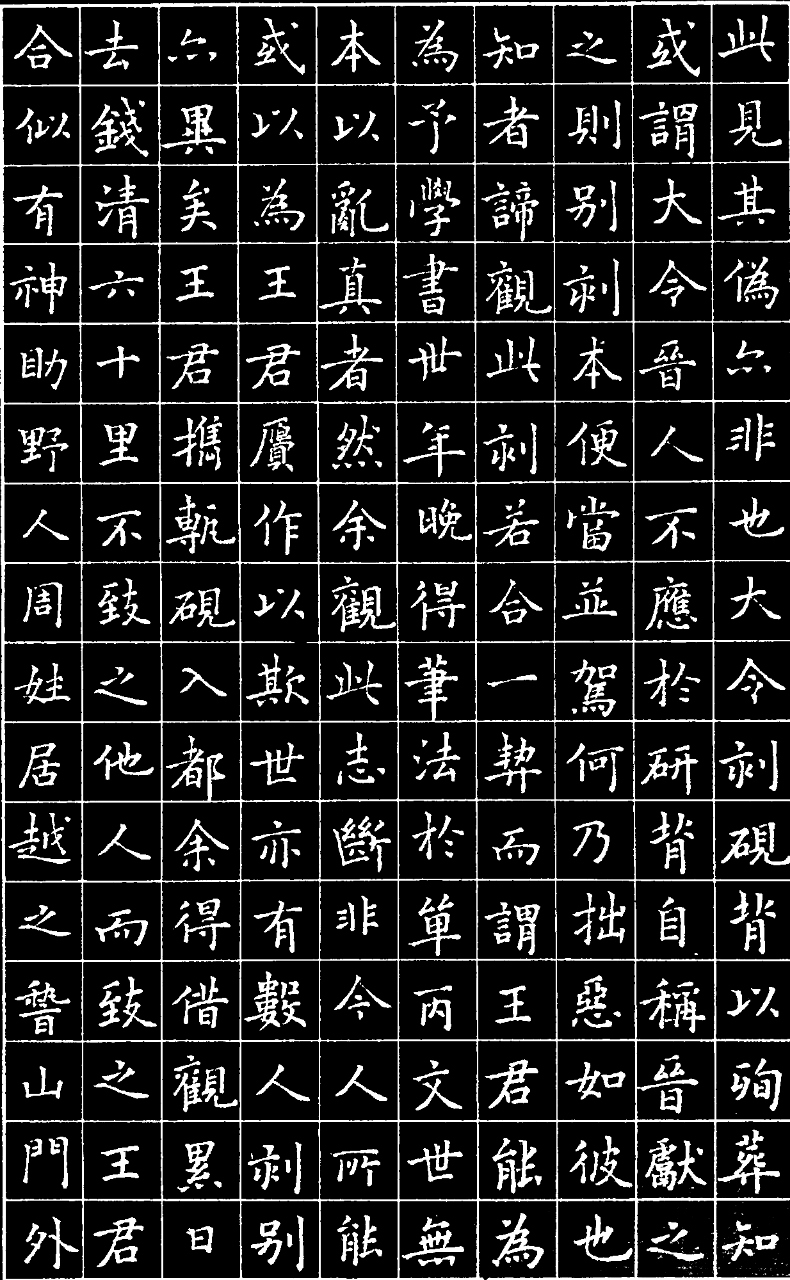 此見其偽亦非也大令刻硯背以殉葬知
或謂大令晉人不應於研背自稱晉獻之
之則別刻本便當並駕何乃拙惡如彼也
知者諦觀此刻若合一契而謂王君能為
為予學書丗年晚得筆法於單丙文世無
本以亂真者然余觀此志斷非今人所能
或以為王君贗作以欺世亦有數人刻別
亦異矣王君攜甎硯入都余得借觀累日
去錢清六十里不致之他人而致之王君
合似有神助野人周姓居越之稽山門外